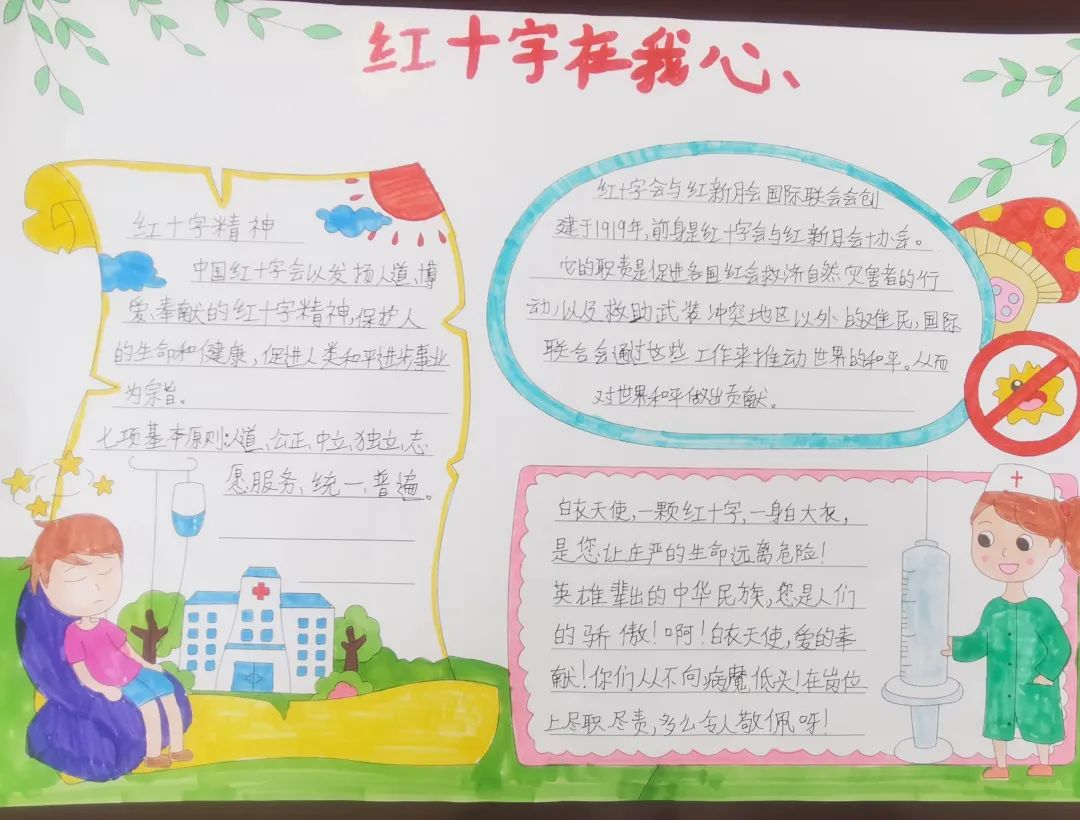 红十字在我心、
红十字精神
中国红十字会以发扬人道、博
爱、奉献的红十字精神,保护人
的生命和健康,促进人类和平进步事业
为宗旨。
七项基本原则:人道、公正、中立、独立、志
愿服务、统一、普遍。
红十字会与红新月会国际联合会创
建于1919年,前身是红十字会与红新月会协会。
它的职责是促进各国红会救济自然灾害者的行
动,以及救助武装冲突地区以外的难民,国际
联合会通过这些工作来推动世界的和平。从而
对世界和平做出贡献。
白衣天使,一颗红十字,一身白大衣,
是您让庄严的生命远离危险!
英雄辈出的中华民族,您是人们
的骄傲!啊!白衣天使,爱的奉
献!你们从不向病魔低头!在岗位
上尽职尽责,多么令人敬佩呀!